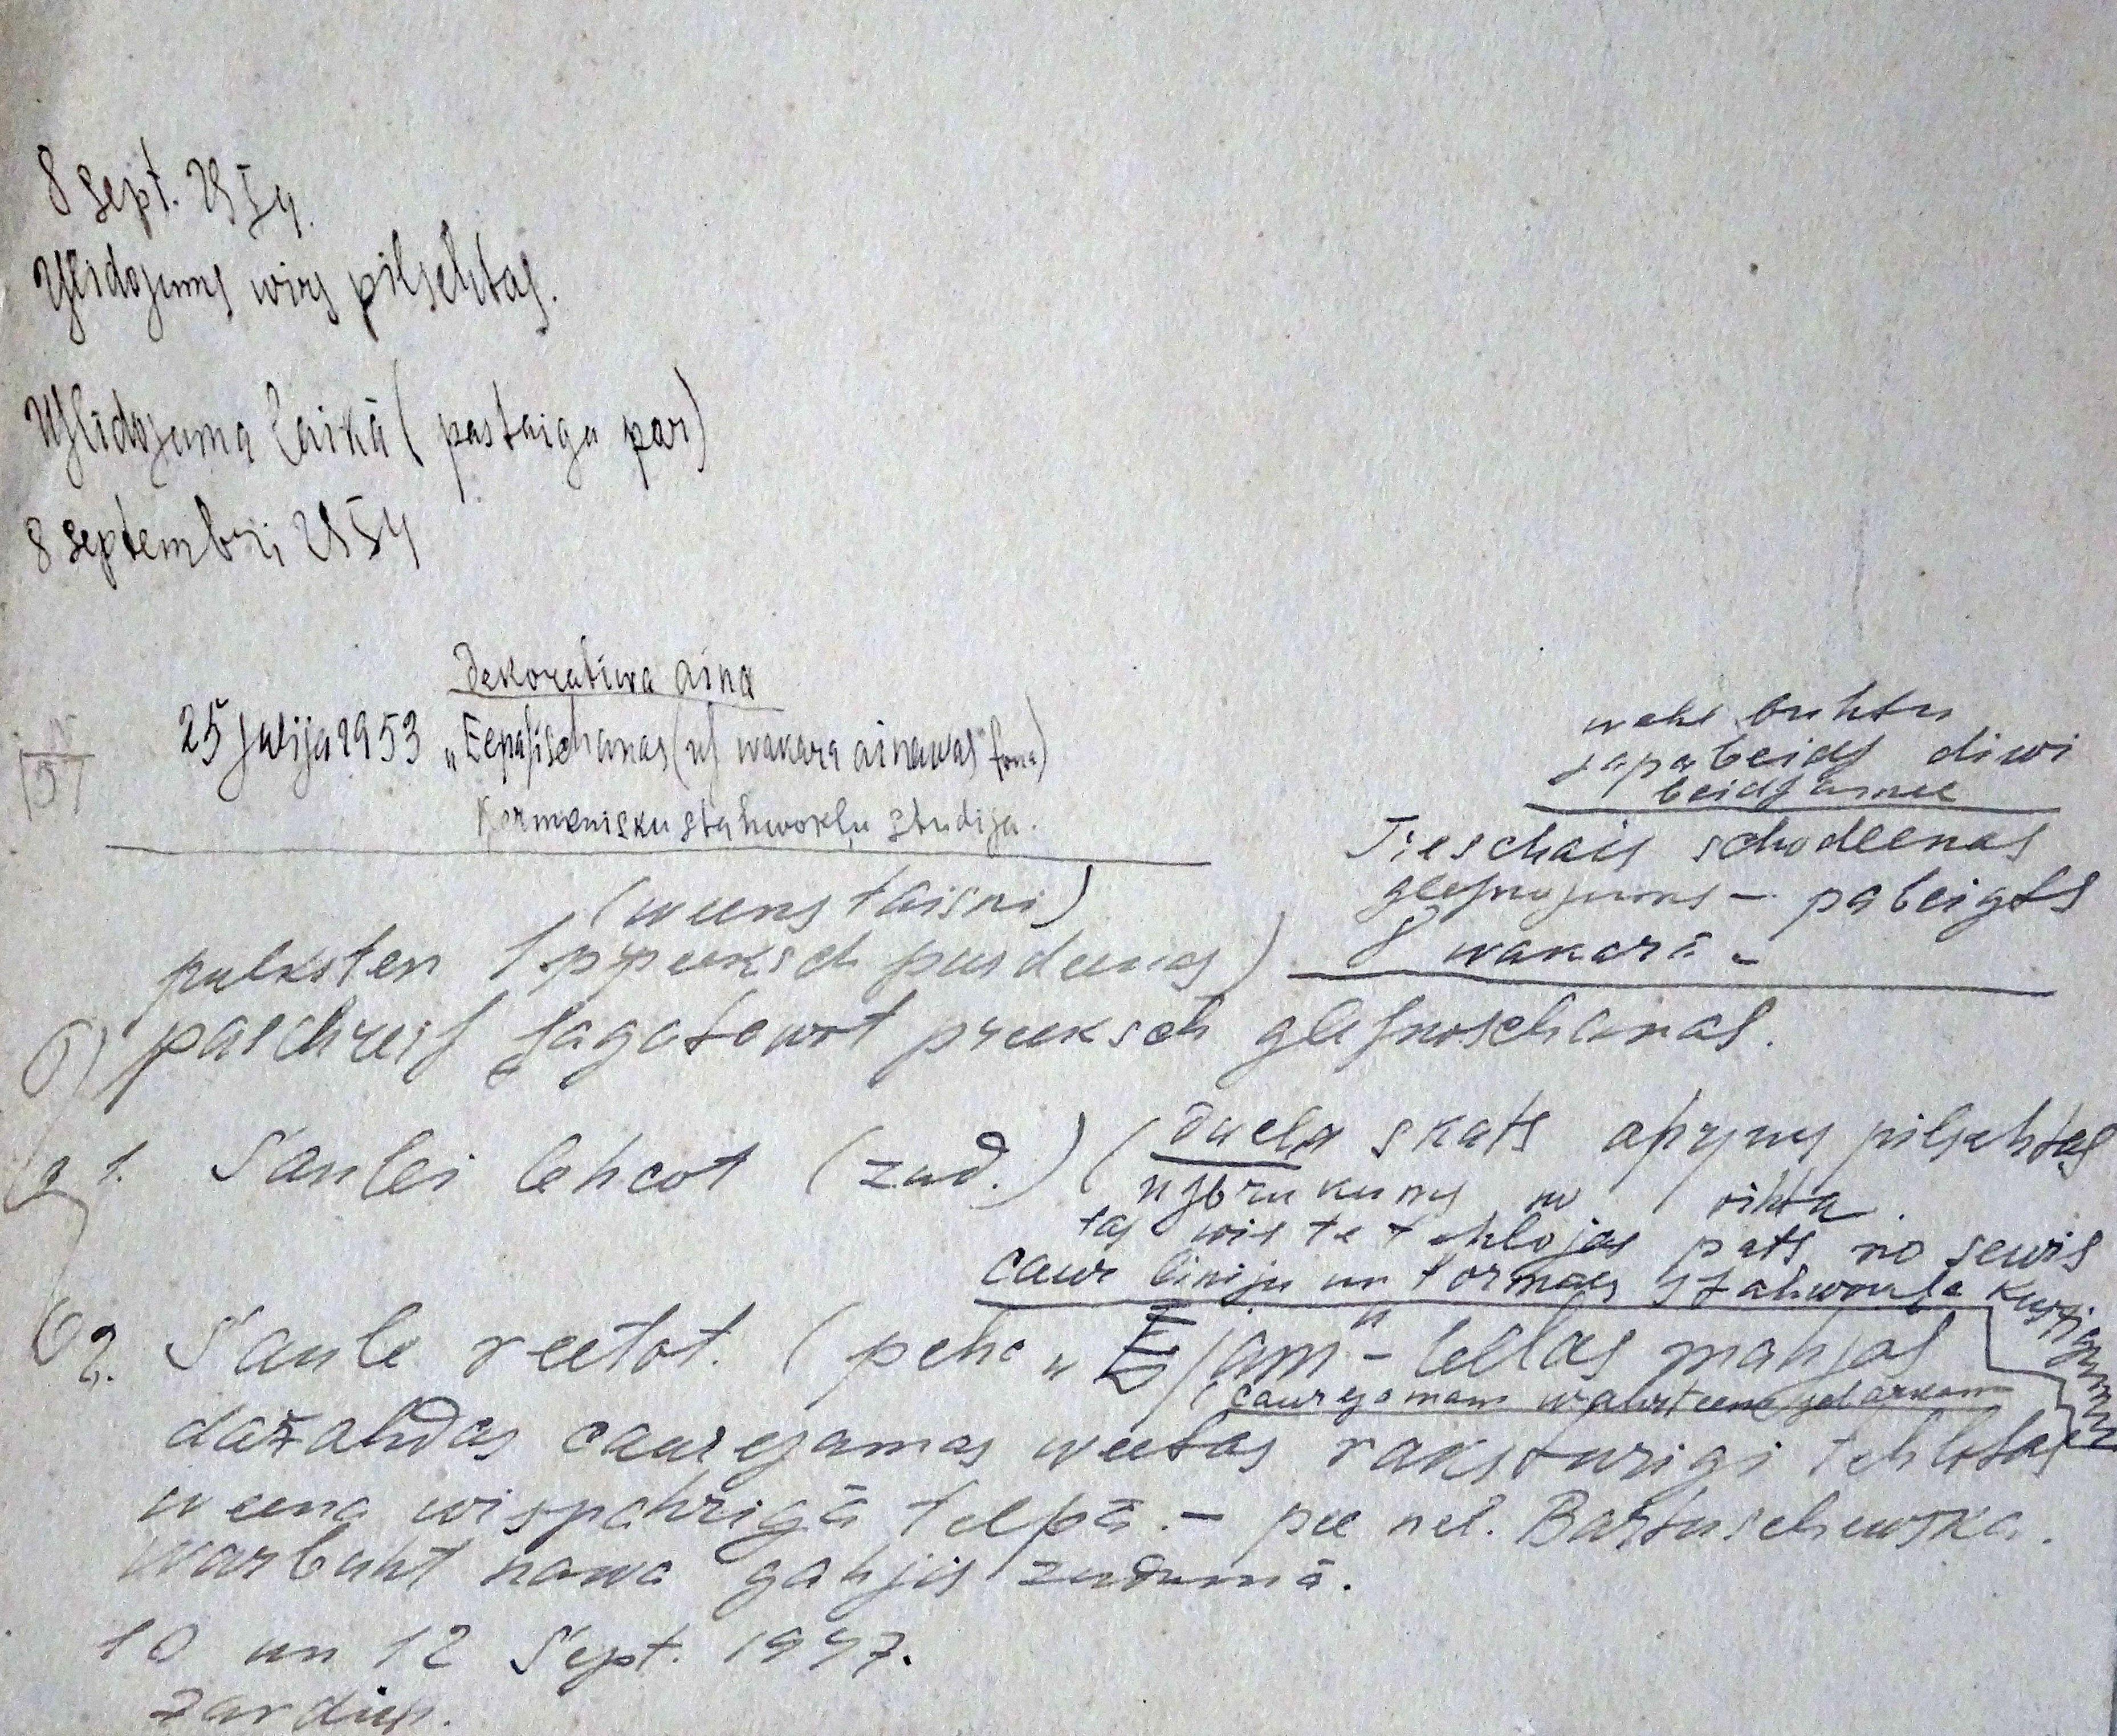 8 sept. 1954.
Uslidojums wirs pilsehtas.
Uslidojuma laikā (pastaiga par)
8 septembri 1954
Dekoratiwa aina
25 Julija 1953 „Eepasischanas (us wakara ainawas" fona)
Kermenisku stahwokļu studija.
wehl buhtu
japabeids diwi
beidsamee
Tieschais schodeenas
glesnojums – pabeigts
8 wakarā –
(weens taisni)
pulksten 1 preeksch pusdeenas)
6) paschreis sagatawot preeksch glesnoschanas.
a 1. Saulei lehcot (zud.) (Duela skats ap pilsehtas
usbrukums no rihta.
tas wis te tehlojas pats no sewis
caur liniju un formas stahwokļa kustijumu
6 2. Saule reetot. (pehc „Ejam" – leelas mahjas
(caurejamam
daźahdas caurejamas weetas raksturigi tehlotas
weena wispahrigā telpā. – pee nel. Bartuschewska.
warbuht nawa gahjis zudumā.
10 un 12 Sept. 1947.